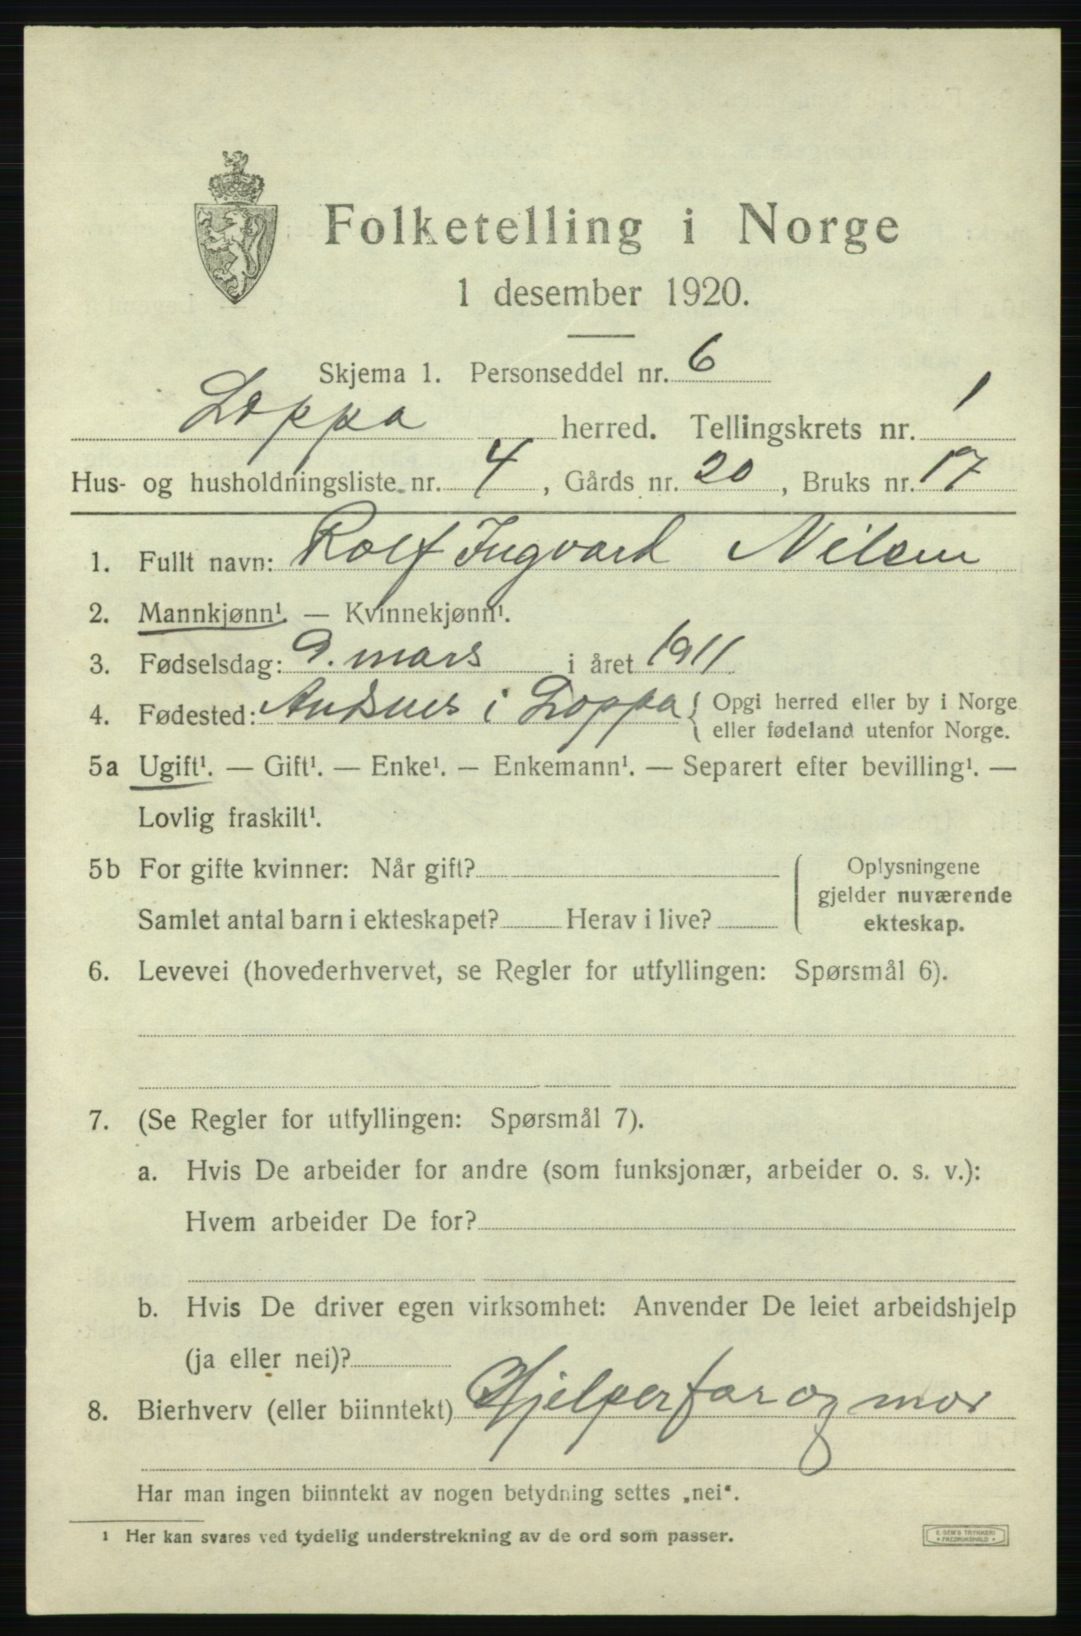 Folketelling i Norge
1 desember 1920.
Skjema 1. Personseddel nr. 6
Loppa herred. Tellingskrets nr. 1
Hus- og husholdningsliste nr. 4, Gårds nr. 20, Bruks nr. 17
1. Fullt navn: Rolf Ingvard Nilsen
2. Mannkjønn¹. — Kvinnekjønn¹.
3. Fødselsdag: 9. mars i året 1911
4. Fødested: Andsnes i Loppa { Opgi herred eller by i Norge
eller fødeland utenfor Norge.
5a Ugift¹. — Gift¹. — Enke¹. — Enkemann¹. — Separert efter bevilling¹. —
Lovlig fraskilt¹.
5b For gifte kvinner: Når gift?
Samlet antal barn i ekteskapet? Herav i live?
Oplysningene
gjelder nuværende
ekteskap.
6. Levevei (hovederhvervet, se Regler for utfyllingen: Spørsmål 6).
7. (Se Regler for utfyllingen: Spørsmål 7).
a. Hvis De arbeider for andre (som funksjonær, arbeider o. s. v.):
Hvem arbeider De for?
b. Hvis De driver egen virksomhet: Anvender De leiet arbeidshjelp
(ja eller nei)?
8. Bierhverv (eller biinntekt) Hjelper far og mor
Har man ingen biinntekt av nogen betydning settes „nei“.
¹ Her kan svares ved tydelig understrekning av de ord som passer.
E. SEM'S TRYKKERI
FREDRIKSHALD